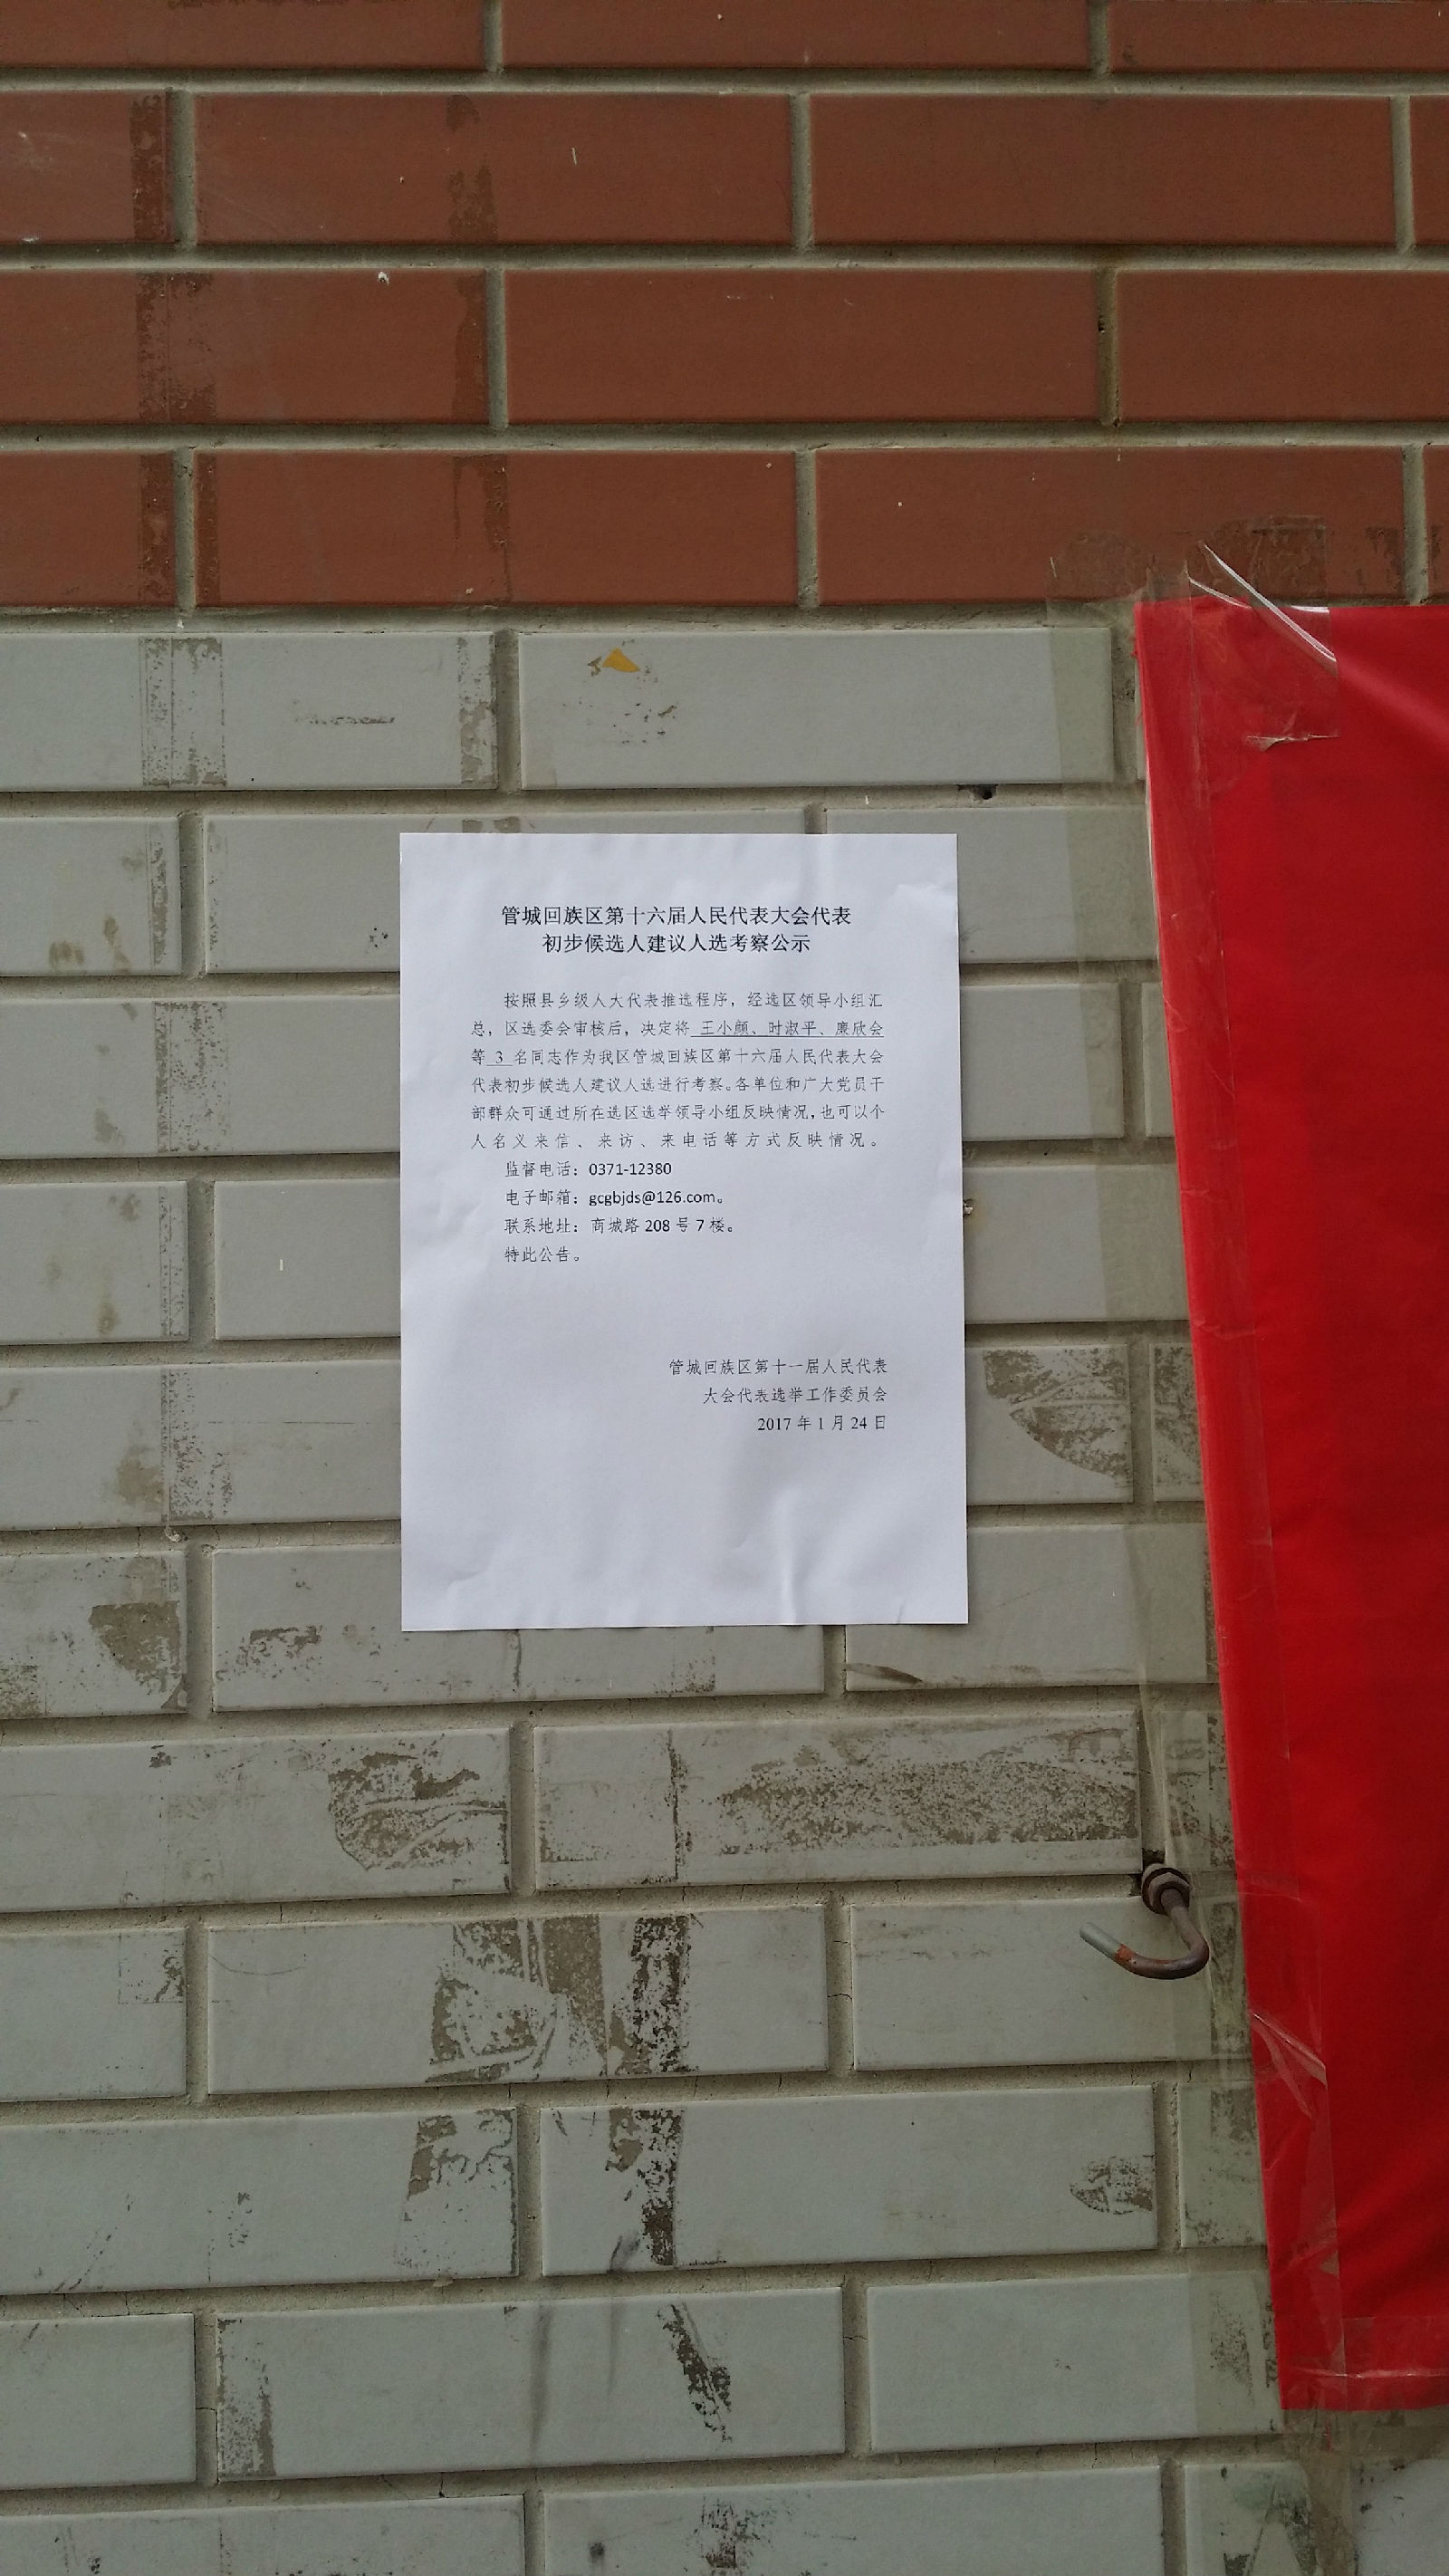 管城回族区第十六届人民代表大会代表
初步候选人建议人选考察公示
按照县乡级人大代表推选程序，经选区领导小组汇
总，区选委会审核后，决定将 王小颜、时淑平、廉欣会
等 3 名同志作为我区管城回族区第十六届人民代表大会
代表初步候选人建议人选进行考察。各单位和广大党员干
部群众可通过所在选区选举领导小组反映情况，也可以个
人名义来信、来访、来电话等方式反映情况。
监督电话：0371-12380
电子邮箱：gcgbjds@126.com。
联系地址：商城路 208 号 7 楼。
特此公告。
管城回族区第十一届人民代表
大会代表选举工作委员会
2017 年 1 月 24 日